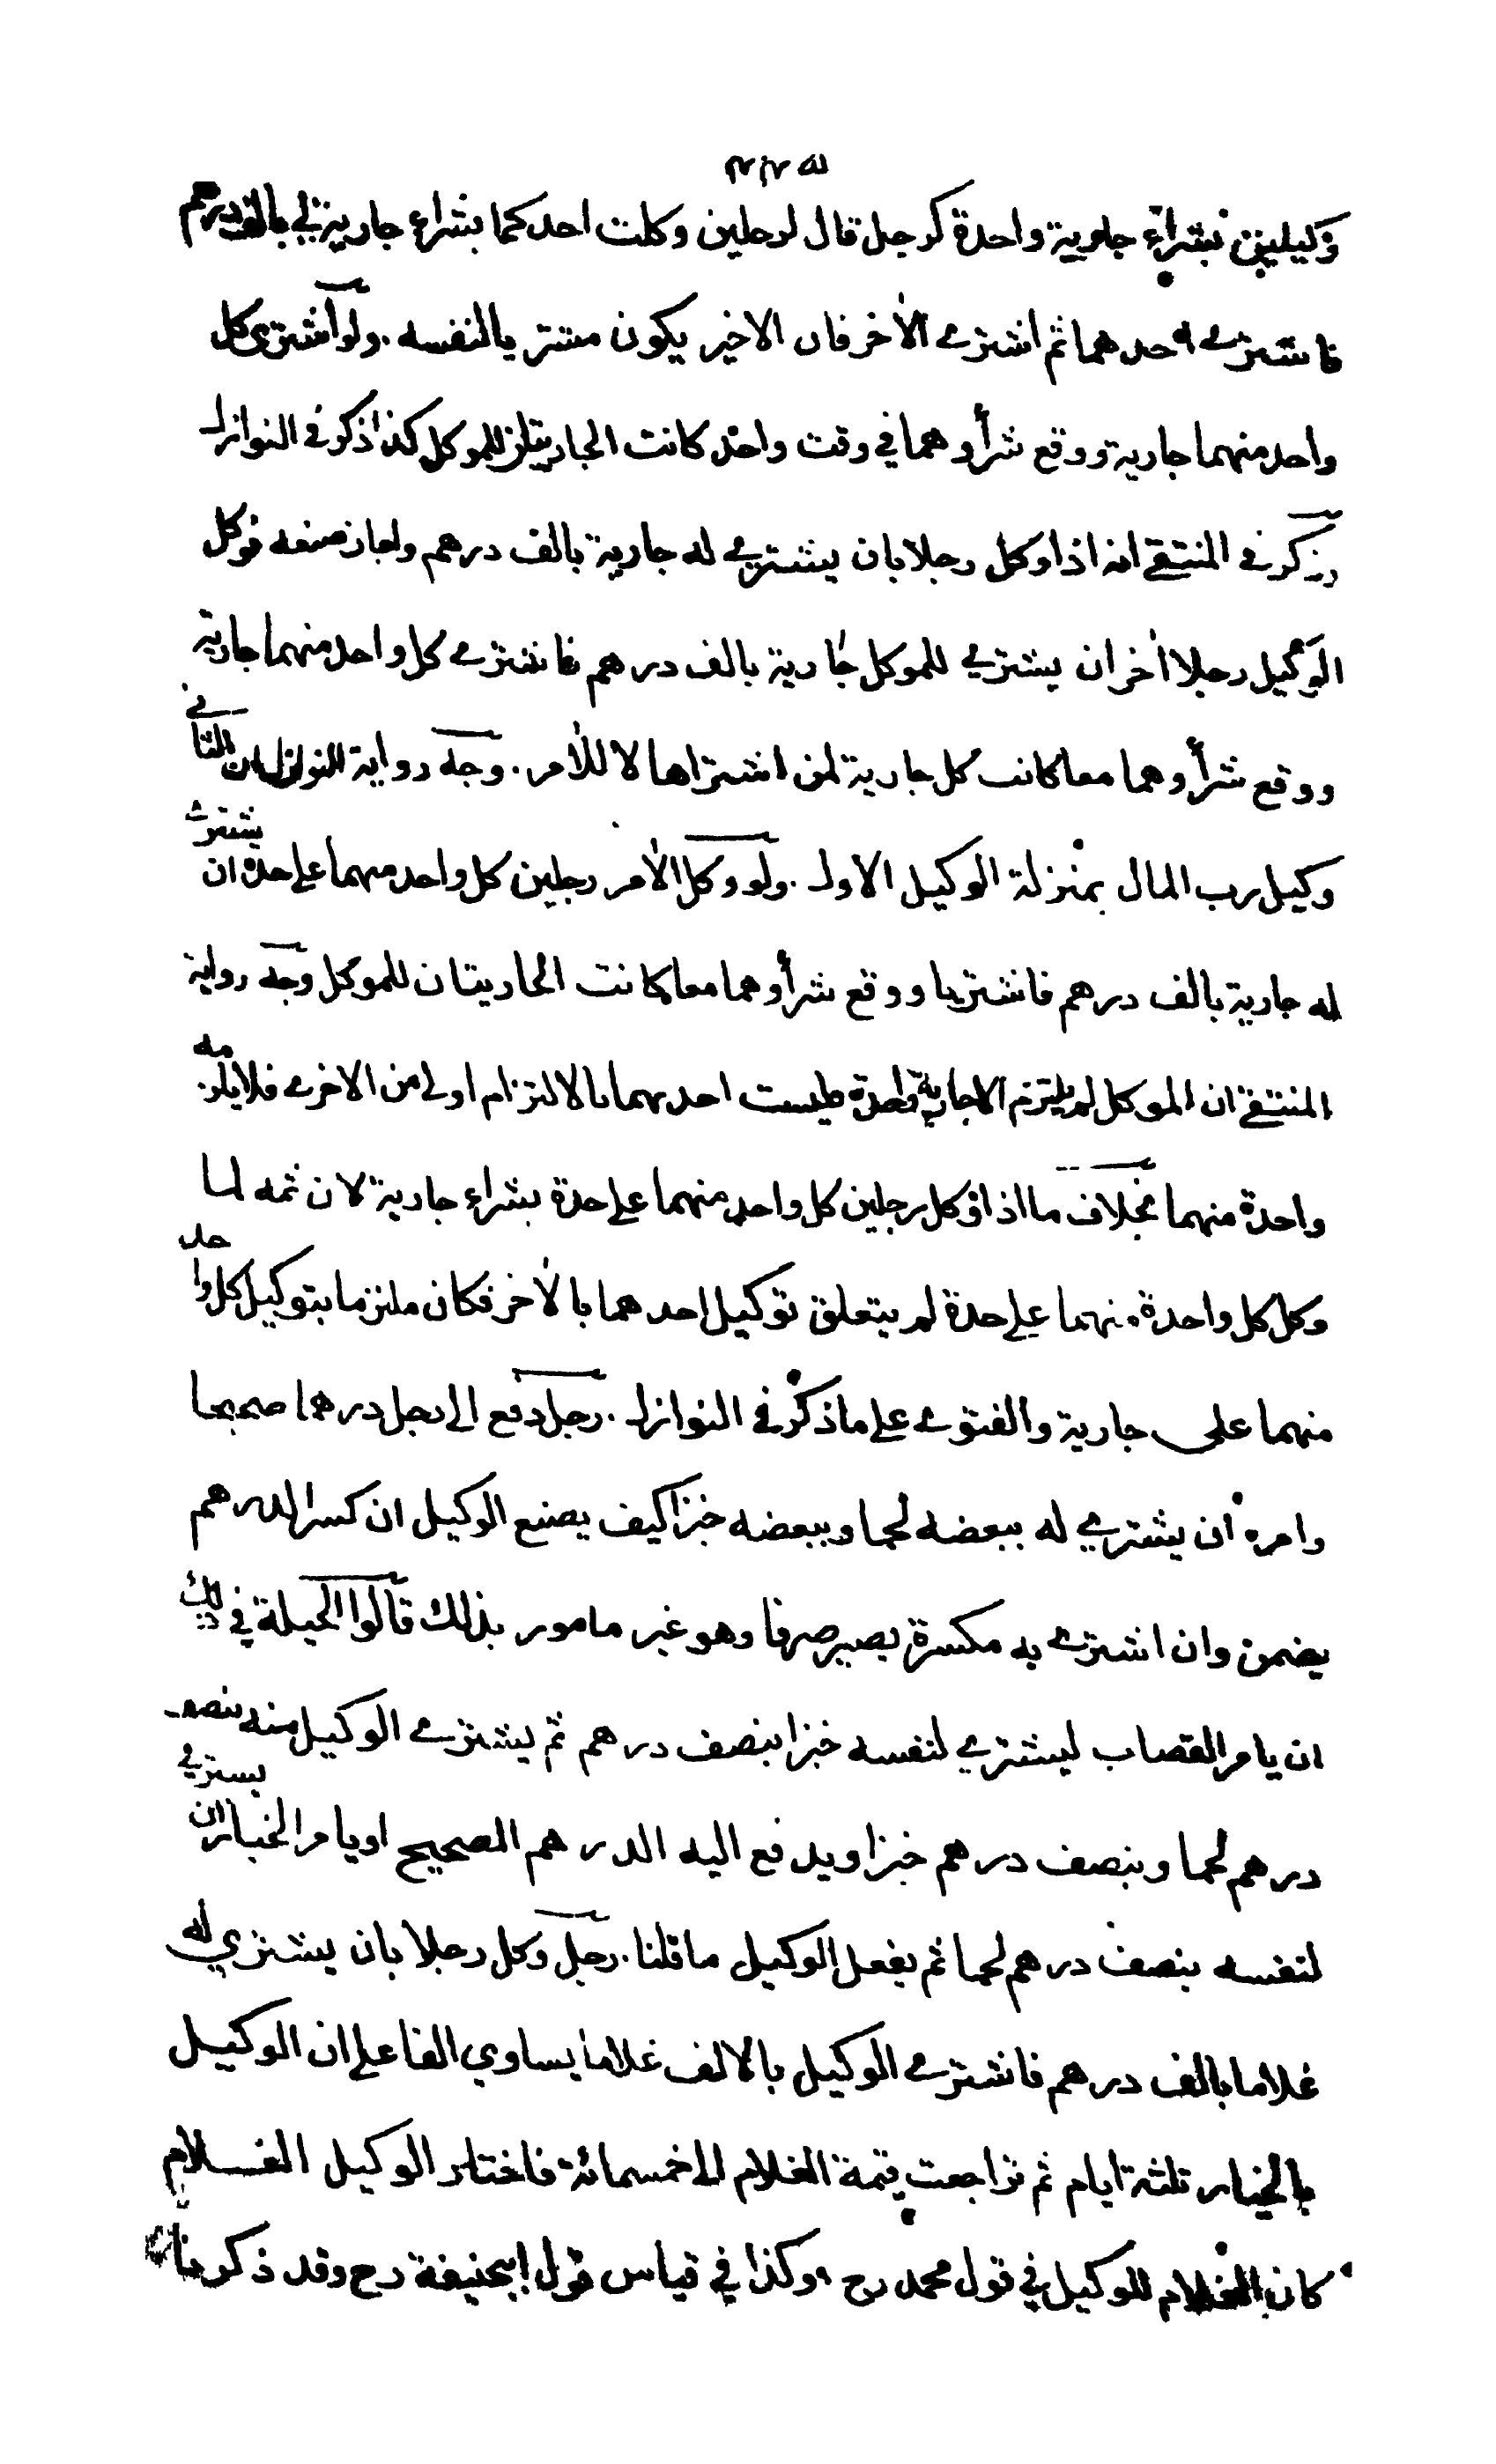 وكيلين بشراء جارية واحدة كرجل قال لرجلين وكلت احدكما بشراء جارية لي بالف درهم
فاشترى احدهما ثم اشترى الآخر فان الاخير يكون مشتريا لنفسه . ولو اشترى كل
واحد منهما جارية ووقع شرأوهما في وقت واحد كانت الجاريتان للموكل كذا ذكر في النوازل
وذكر في المنتقى انه اذا وكل رجلا بان يشتري له جارية بالف درهم واجاز صنعه فوكل
الوكيل رجلا آخر ان يشتري للموكل جارية بالف درهم فاشترى كل واحد منهما جارية
ووقع شرأوهما معا كانت كل جارية لمن اشتراها لا للآمر . وجه رواية النوازل ان الثاني
وكيل رب المال بمنزلة الوكيل الاول . ولو وكل الآمر رجلين كل واحد منهما على حدة ان يشتري
له جارية بالف درهم فاشتريا ووقع شرأوهما معا كانت الجاريتان للموكل وجه رواية
المنتقى ان الموكل لم يلتزم الا جارية واحدة وليست احدىهما بالالتزام اولى من الاخرى فلا يلزمه
واحدة منهما بخلاف ما اذا وكل رجلين كل واحد منهما على حدة بشراء جارية لان ثمه لما
وكل كل واحدة منهما على حدة لم يتعلق توكيل احدهما بالآخر فكان ملتزما بتوكيل كل واحد
منهما على جارية والفتوى على ما ذكر في النوازل . رجل دفع الى رجل درهما صحيحا
وامره ان يشتري له ببعضه لحما وببعضه خبزا كيف يصنع الوكيل ان كسر الدرهم
يضمن وان اشترى به مكسرة يصير صرفا وهو غير مامور بذلك قالوا الحيلة في ذلك
ان يامر القصاب ليشتري لنفسه خبزا بنصف درهم ثم يشتري الوكيل منه بنصف
درهم لحما وبنصف درهم خبزا ويدفع اليه الدرهم الصحيح او يامر الخباز ان يشتري
لنفسه بنصف درهم لحما ثم يفعل الوكيل ما قلنا . رجل وكل رجلا بان يشتري له
غلاما بالف درهم فاشترى الوكيل بالالف غلاما يساوي الفا على ان الوكيل
بالخيار ثلثة ايام ثم تراجعت قيمة الغلام الى خمسمائة فاختار الوكيل الغلام
كان الغلام للوكيل في قول محمد رح وكذا في قياس قول ابيحنيفة رح وقد ذكرنا